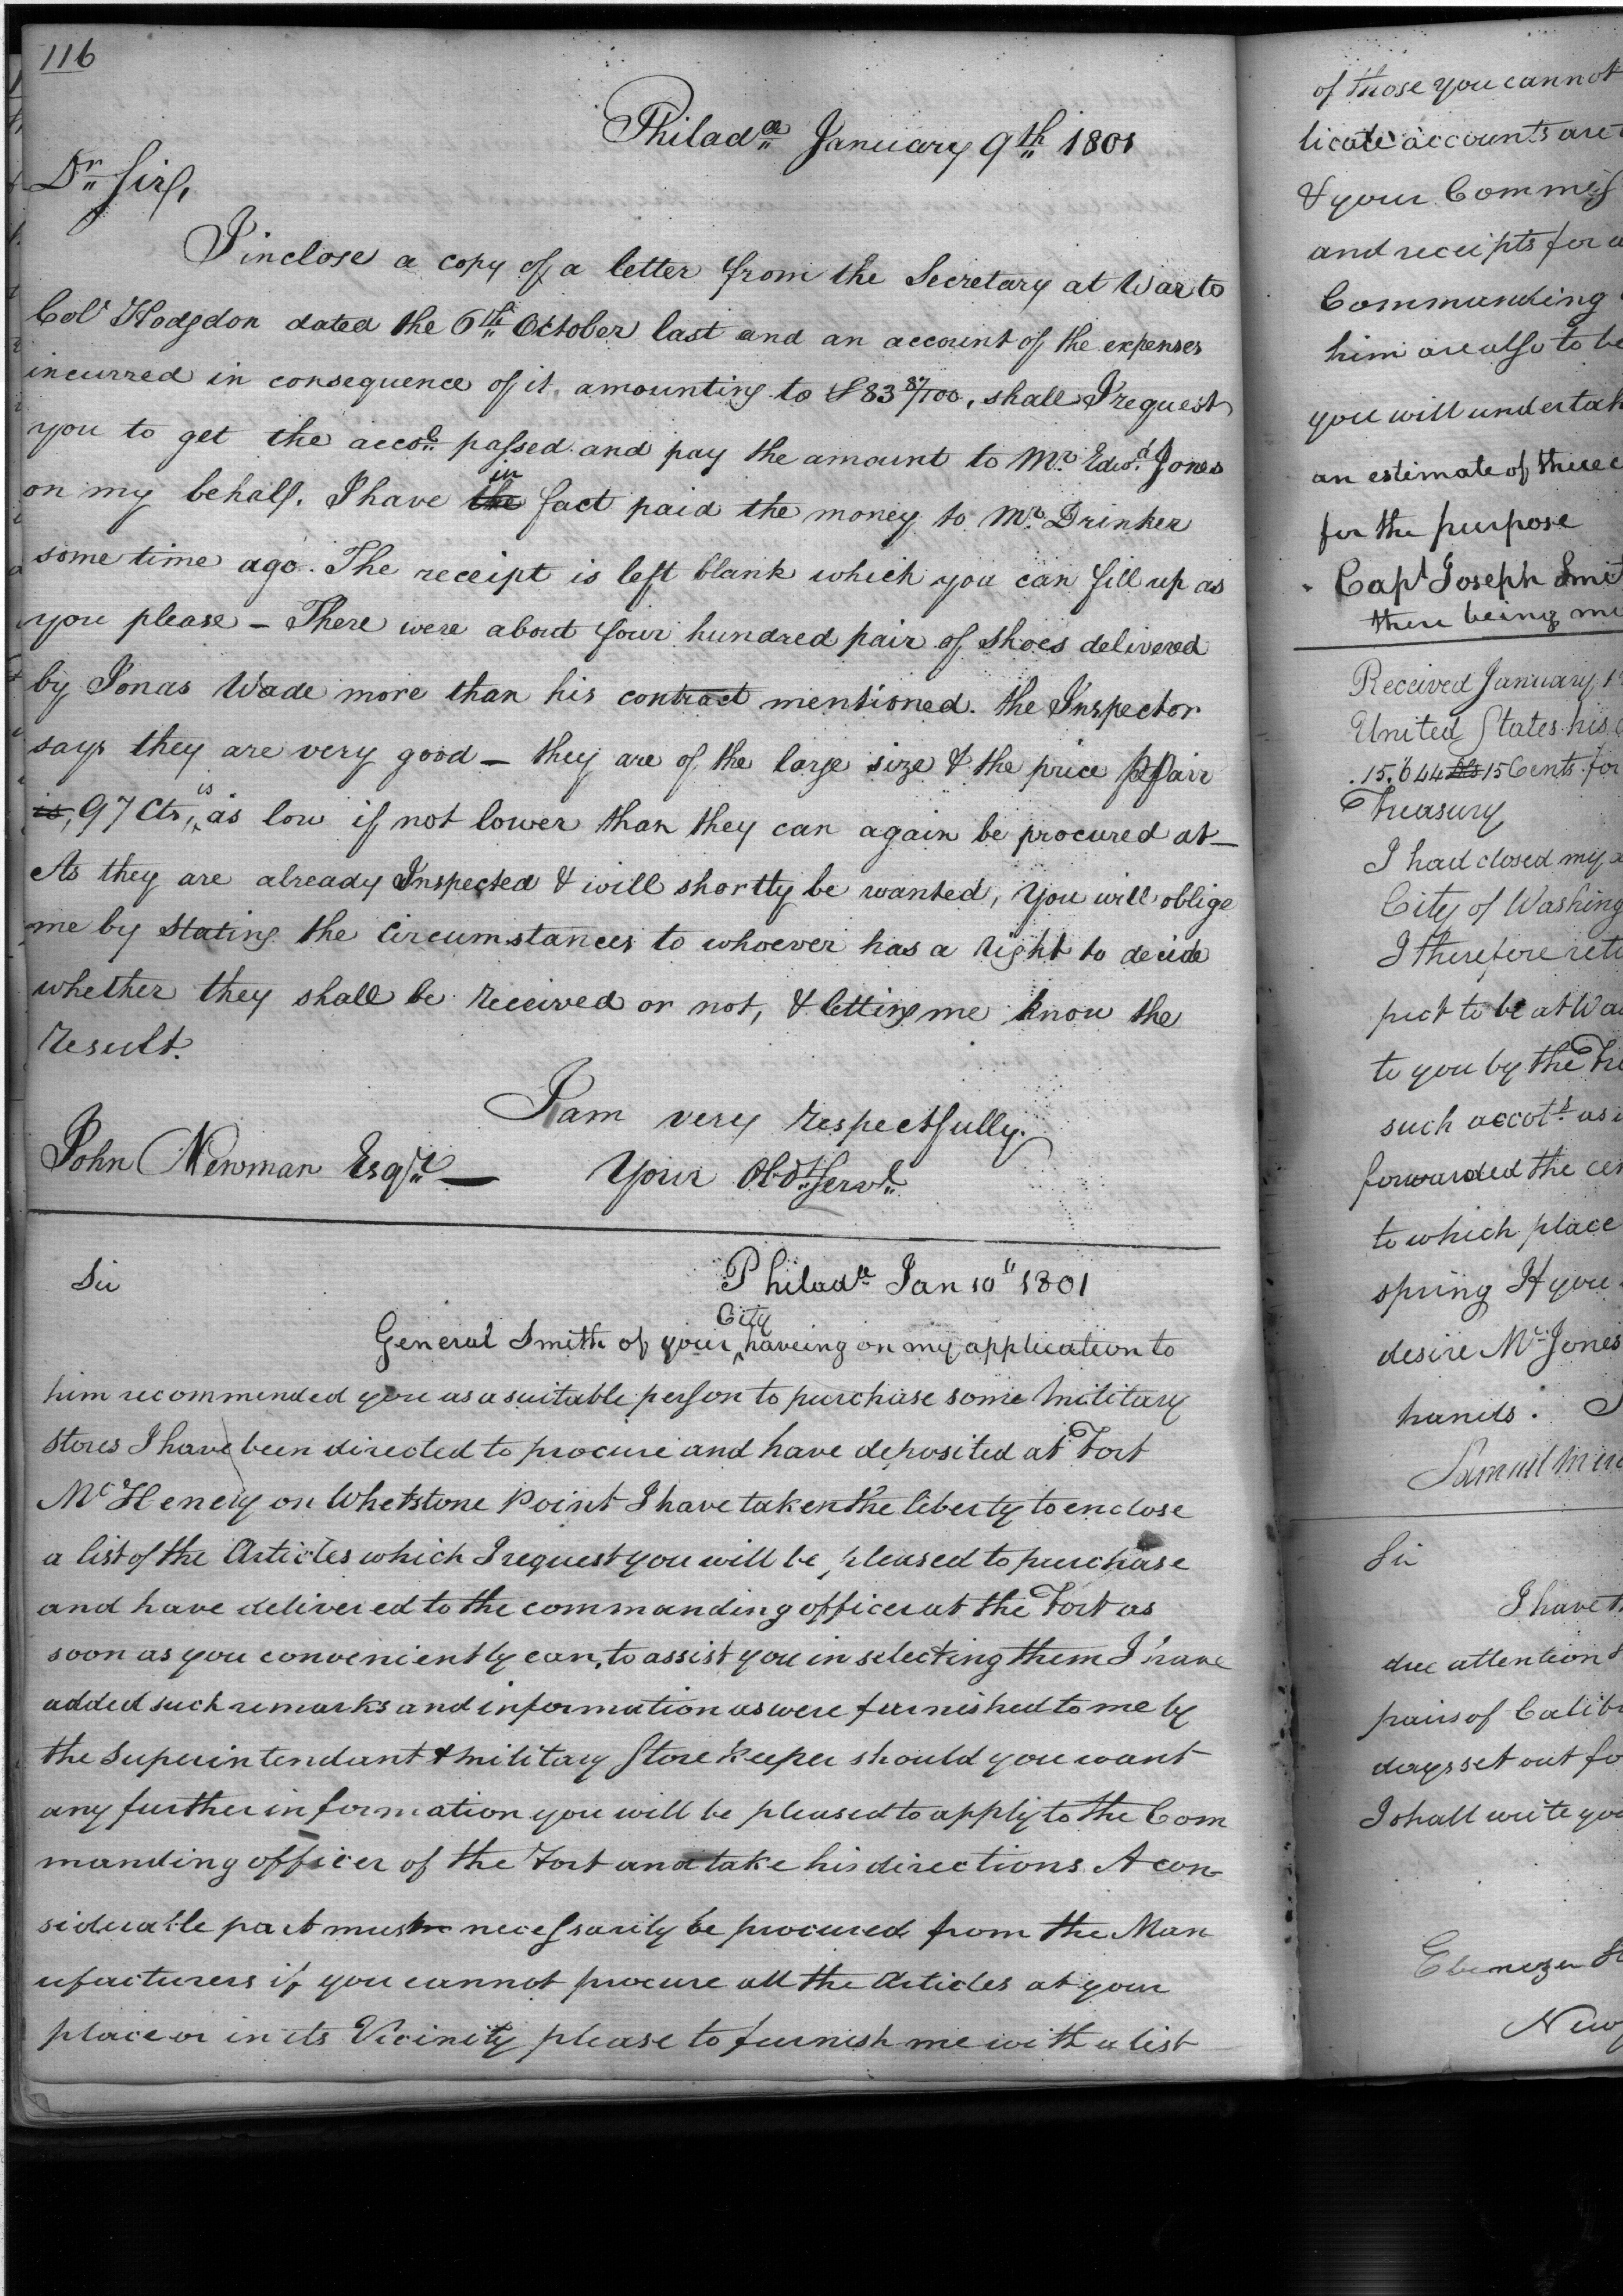 116
Philad.ª January 9th 1801
Dr Sir,
I inclose a copy of a letter from the Secretary at War to
Col Hodgdon dated the 6th October last and an account of the expenses
incurred in consequence of it, amounting to $83 87/100, shall I request
you to get the acco.t passed and pay the amount to Mr. Edwd. Jones
on my behalf. I have the in fact paid the money to Mr. Drinker
some time ago. The receipt is left blank which you can fill up as
you please – There were about four hundred pair of shoes delivered
by Jonas Wade more than his contract mentioned. the Inspector
says they are very good – they are of the large size & the price p Pair
is, 97 Cts, is as low if not lower than they can again be procured at –
As they are already Inspected & will shortly be wanted, you will oblige
me by stating the circumstances to whoever has a right to decide
whether they shall be received or not, & letting me know the
result.
I am very respectfully.
John Newman Esqr – Your Obdt Servt
Sir Philada Jan 10" 1801
General Smith of your City haveing on my application to
him recommended you as a suitable person to purchase some military
stores I have been directed to procure and have deposited at Fort
McHenery on Whetstone Point I have taken the liberty to enclose
a list of the Articles which I request you will be pleased to purchase
and have delivered to the commanding officer at the Fort as
soon as you conveniently can, to assist you in selecting them I have
added such remarks and information as were furnished to me by
the Superintendant & military Store keeper should you want
any further information you will be pleased to apply to the Com
manding officer of the Fort and take his directions A con-
siderable part must necessarily be procured from the Man
ufacturers if you cannot procure all the Articles at your
place or in its Vicinity please to furnish me with a list
of those you cannot
licate accounts are
& your Commiss
and receipts for
Commanding
him are also to be
you will undertak
an estimate of
for the purpose
Capt Joseph Smit
there being
Received January
United States his
15,644 15 Cents for
Treasury
I had closed my
City of Washing
I therefore
pect to be at Wa
to you by the
such accots as
forwarded the
to which place
spring If you
desire Mr Jones
hands.
Samuel
Sir
I have
due attention
pairs of Calib
days set out fo
I shall write you
Ebenezer
New